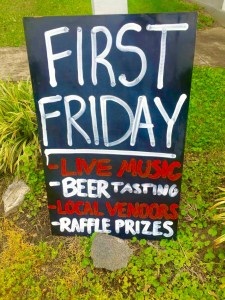 FIRST
FRIDAY
-LIVE MUSIC
-BEER TASTING
-LOCAL VENDORS
-RAFFLE PRIZES